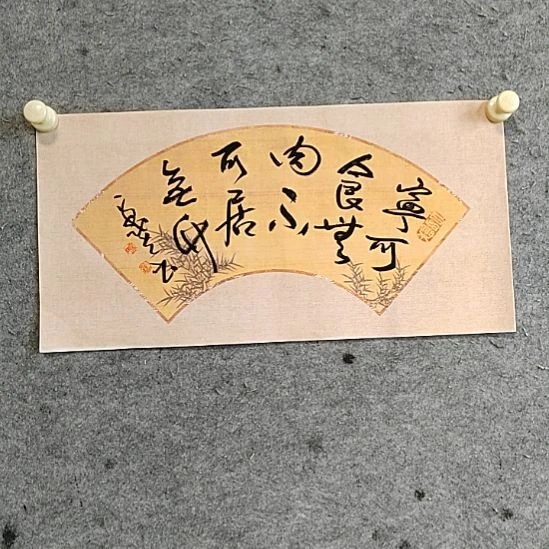 寧可
食無
肉不
可居
無竹